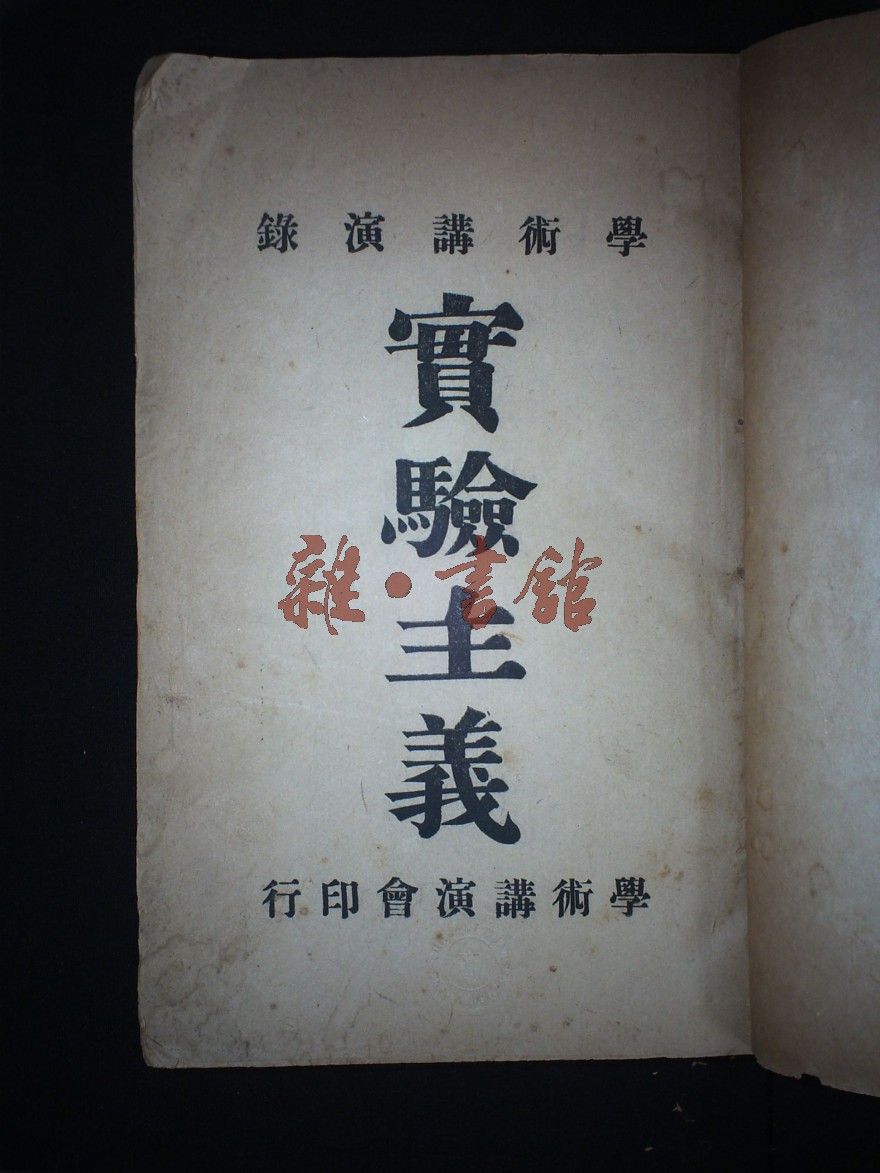 學術講演錄
實驗主義
雜·書館
學術講演會印行